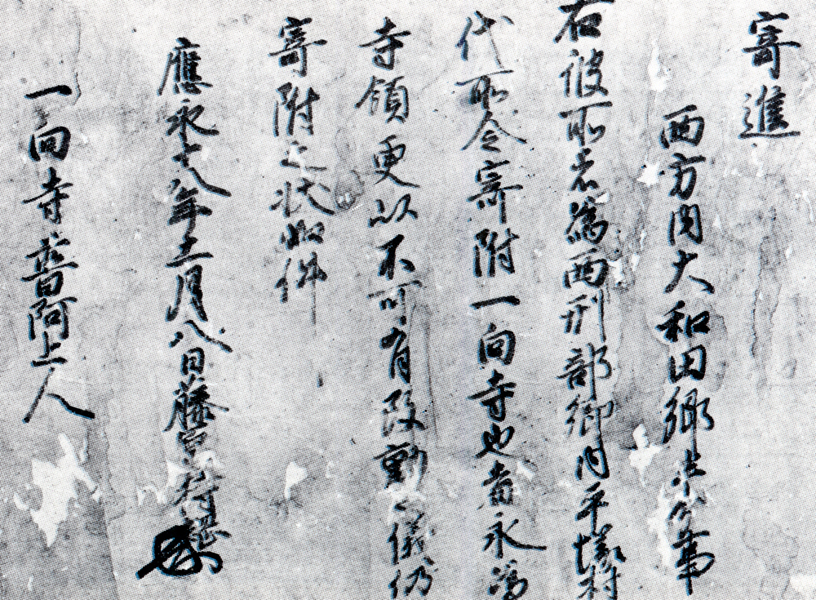 寄進
西方内大和田郷半分事
右彼所者為西刑部郷内平塚村
代所令寄附一向寺也者永為
寺領更以不可有改動之儀仍
寄附之状如件
應永十八年十二月八日藤原持綱
一向寺普阿上人